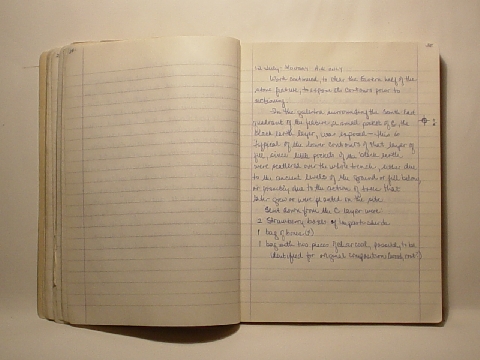 Work continued, to clear the Eastern half of the
stone feature, to expose the contours prior to
sectioning.
In the surrounding the South East
quadrant of the feature, a small pocket of C, the
black earth layer, was exposed - this is
typical of the lower contours of that layer of
fill, since little pockets of the black earth
were scattered over the whole trench, either due
to the ancient levels of the ground or fill below
or possibly due to the action of trees that
grew or were planted in the site.
Sent down from the C layer were
2 Strawberry boxes of
1 bag of bones (?)
1 bag with two pieces of charcoal, possibly to be
identified for original composition (wood, coal?)